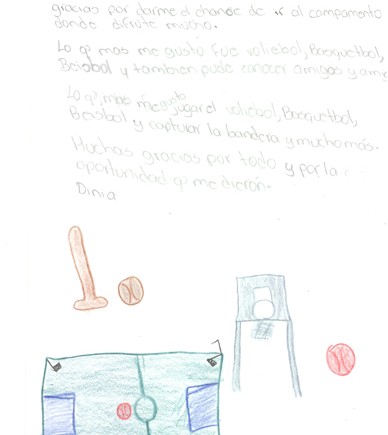 gracias por darme el chance de ir al campamento
donde difrute mucho.
Lo q' mas me gusto fue voliebol, Basquetbol,
Beisbol y tambien pude conocer amigos y amg
Lo q' mas me gusto jugar el voliebol, Basquetbol,
Beisbol y capturar la bandera y mucho más.
Muchas gracias por todo y por la
oportunidad q' me dieron.
Dinia